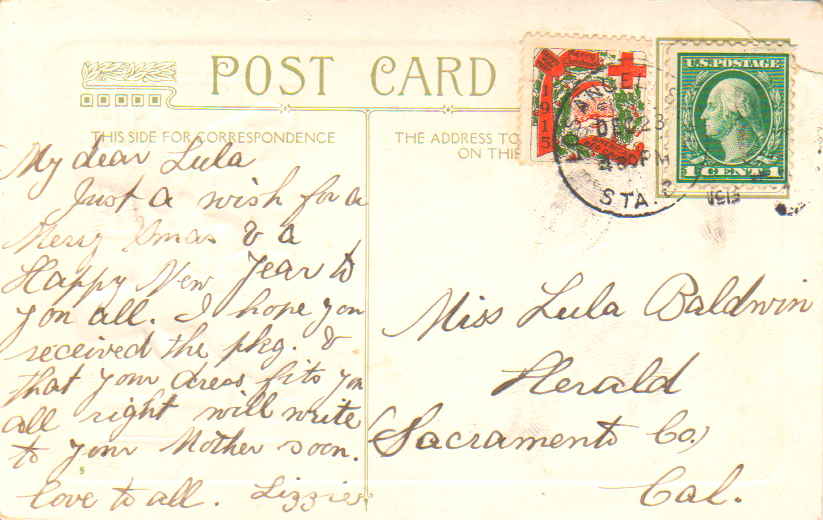 POST CARD
THIS SIDE FOR CORRESPONDENCE
THE ADDRESS TO
ON THIS
1915
U.S. POSTAGE
1 CENT 1
DEC 23
PM
STA.
My dear Lula
Just a wish for a
Merry Xmas & a
Happy New Year to
you all. I hope you
received the pkg. &
that your dress fits you
all right will write
to your Mother soon.
love to all. Lizzie
Miss Lula Baldwin
Herald
Sacramento Co,
Cal.